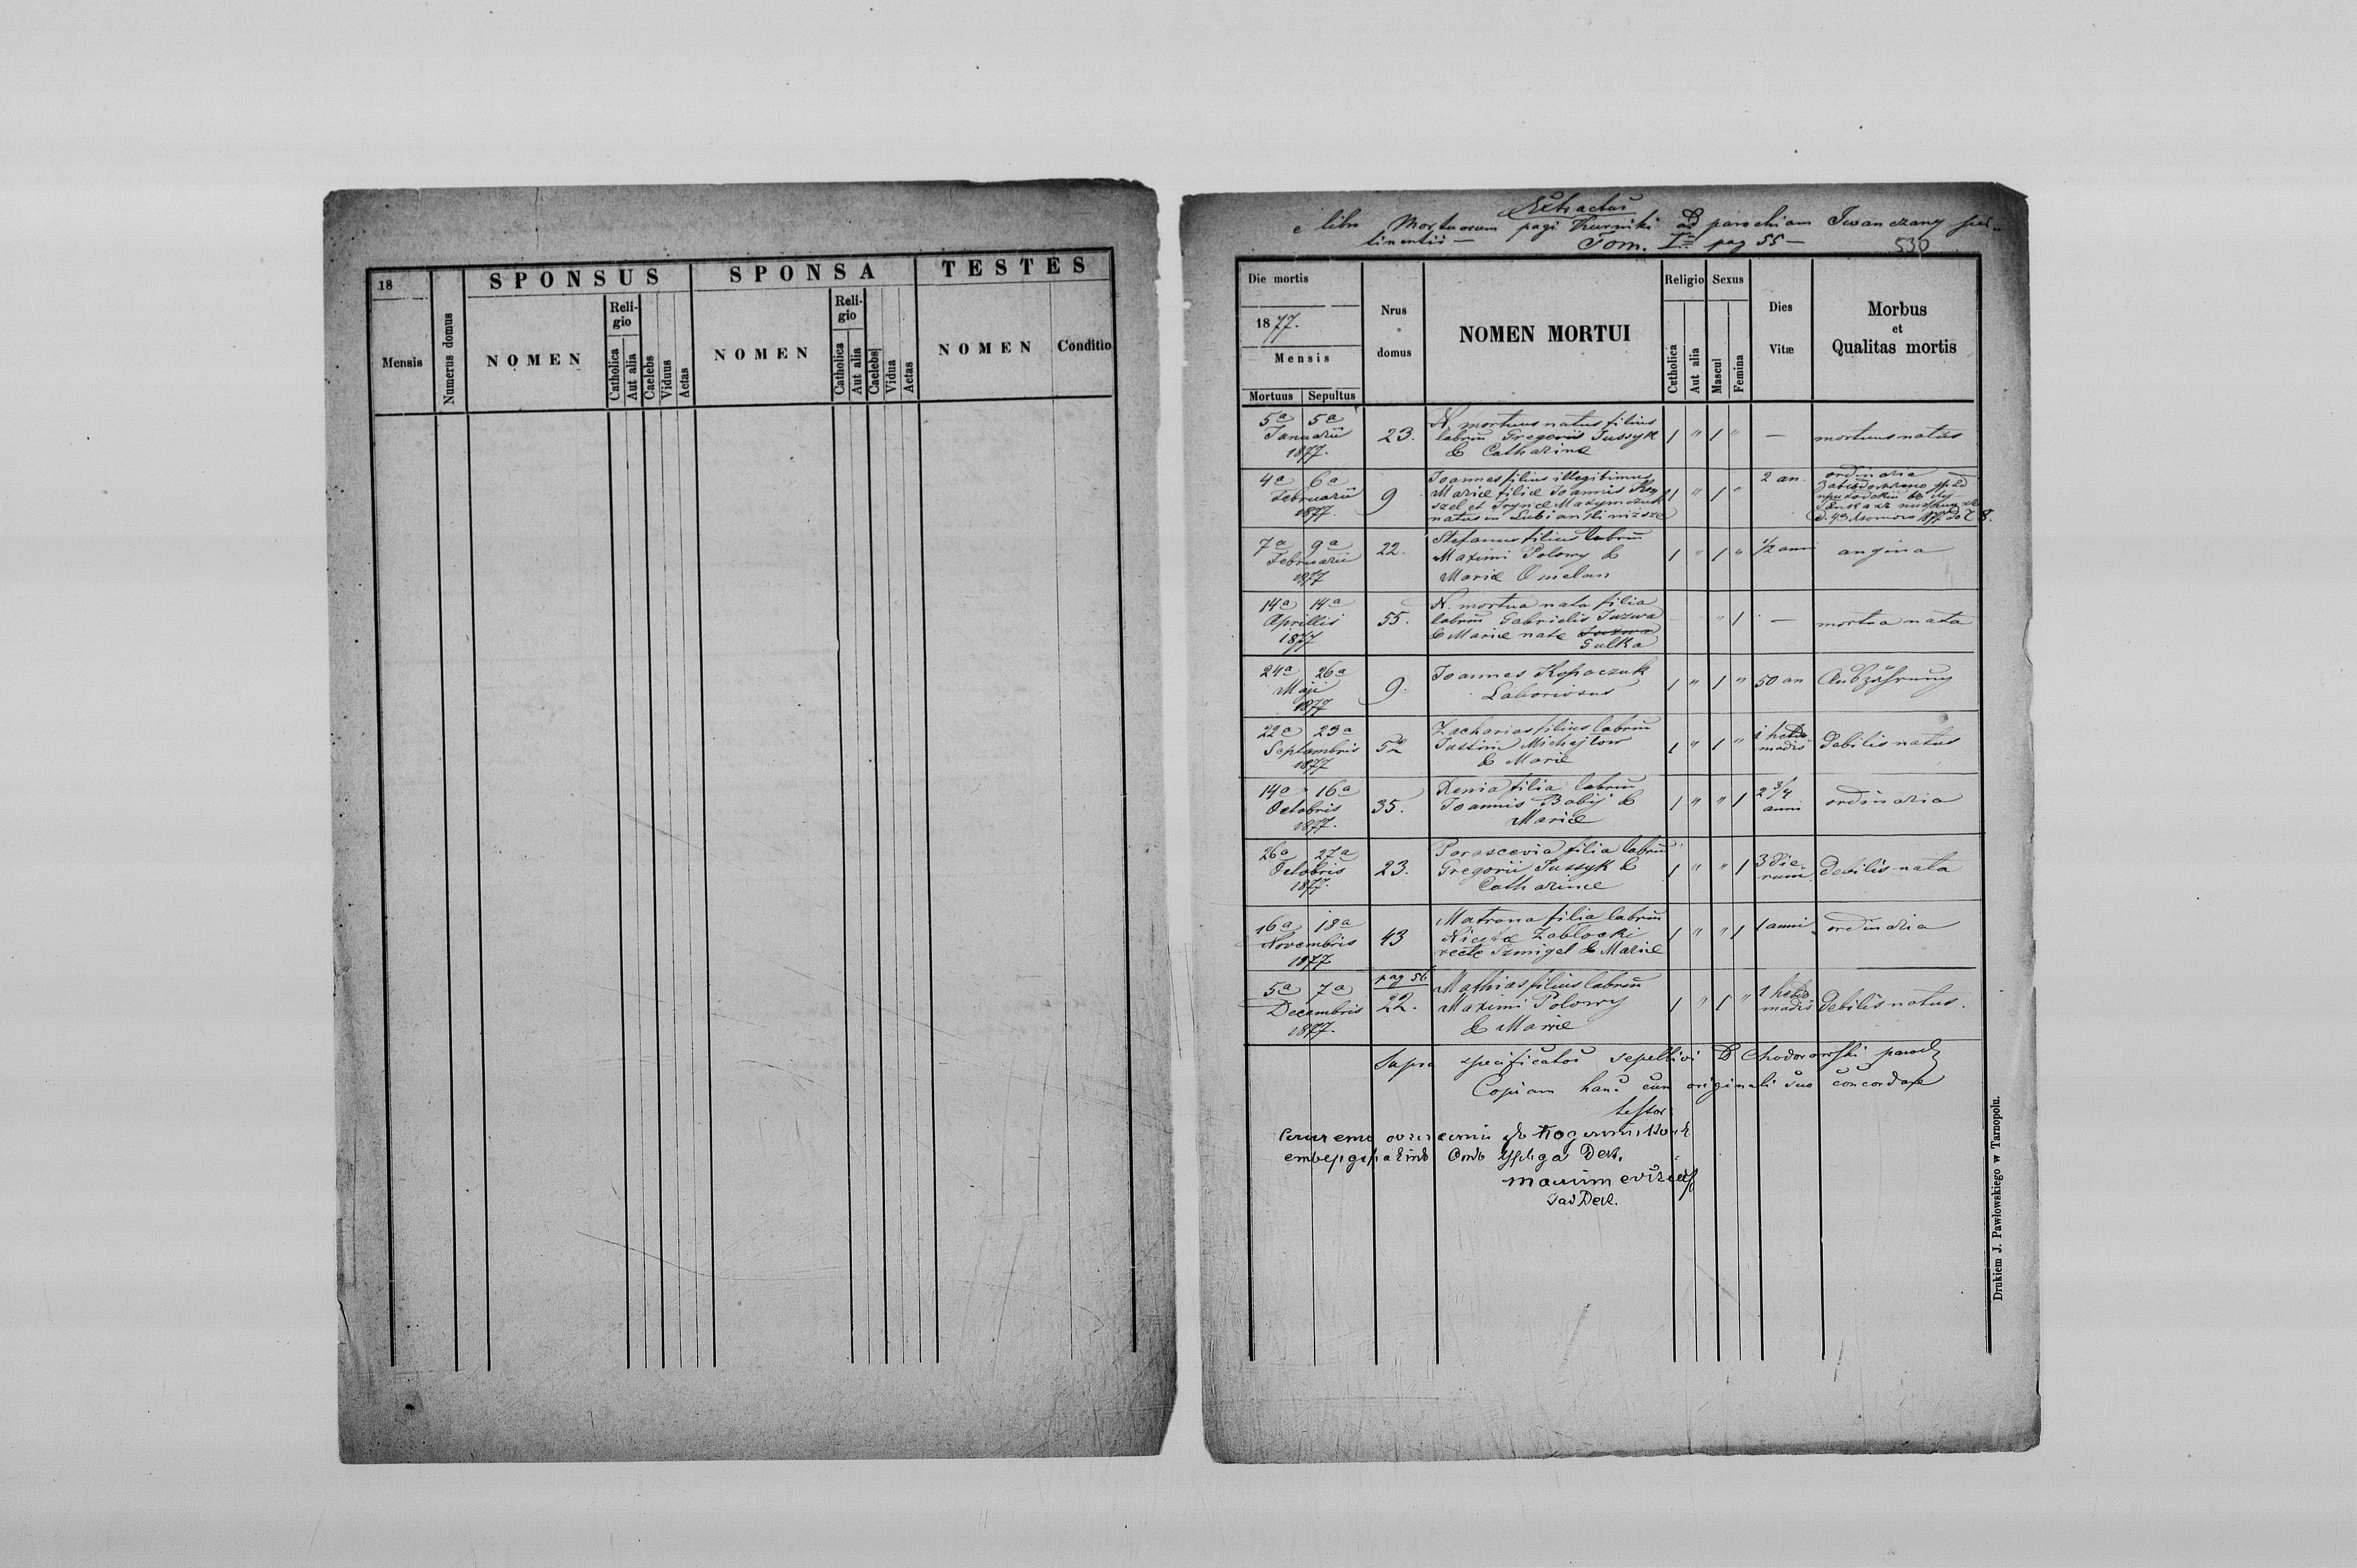 18
Mensis
Numerus domus
SPONSUS
NOMEN
Reli-
gio
Catholica
Aut alia
Caelebs
Viduus
Aetas
SPONSA
NOMEN
Reli-
gio
Catholica
Aut alia
Caelebs
Vidua
Aetas
TESTES
NOMEN
Conditio
Extractus
e libro Mortuorum pagi Kurniki ad parochiam Iwanczany per-
tinentii —
Tom. I pag 55 —
530
Die mortis
1877.
Mensis
Mortuus Sepultus
Nrus
domus
NOMEN MORTUI
Religio
Catholica
Aut alia
Sexus
Mascul
Femina
Dies
Vitæ
Morbus
et
Qualitas mortis
5a 5a
Januarii
1877.
23.
N. mortuus natus filius
labrum Gregorii Jussyk
& Catharinæ
1 " 1 "
—
mortuus natus
4a 6a
Februarii
1877.
9
Joannes filius illegitimus
Mariæ filiæ Joannis
et Irynæ Maxymczuk
natus in
1 " 1 "
2 an.
ordinaria
7a 9a
Februarii
1877
22.
Stefanus filius labrum
Maximi Polowy &
Mariæ Omelan
1 " 1 "
1/2 anni
angina
14a 14a
Aprillis
1877
55.
N. mortua nata filia
labrum Gabrielis Juzwa
& Mariæ nate Juzwa
Gulka
" 1
—
mortua nata
24a 26a
Maji
1877
9.
Joannes Kopaczuk
Laboriosus
1 " 1 "
50 an
Abzährung
22a 23a
Septembris
1877
52
Zacharias filius labrum
Justini Michajlow
& Mariæ
1 " 1 "
1 hebdo-
madis
debilis natus
14a 16a
Octobris
1877.
35.
Xenia filia labrum
Joannis Babij &
Mariæ
1 " " 1
2 3/4
anni
ordinaria
26a 27a
Octobris
1877.
23.
Parascevia filia labrum
Gregorii Jussyk &
Catharinæ
1 " " 1
3 die-
rum
debilis nata
16a 18a
Novembris
1877
43
Matrona filia labrum
Nicetæ Zablocki
recte Szmigel & Mariæ
1 " " 1
1 anni
ordinaria
5a 7a
Decembris
1877.
pag 56
22.
Mathias filius labrum
Maximi Polowy
& Mariæ
1 " 1 "
1 hebdo-
madis
debilis natus.
Supra specificatos sepellivi D Chodorowski paroch
Copiam hanc cum originali suo concordare
testor
Drukiem J. Pawłowskiego w Tarnopolu.